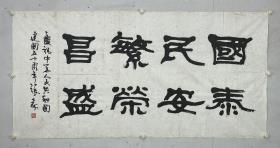 國泰
民安
繁榮
昌盛
慶祝中華人民共和國
建國五十周年